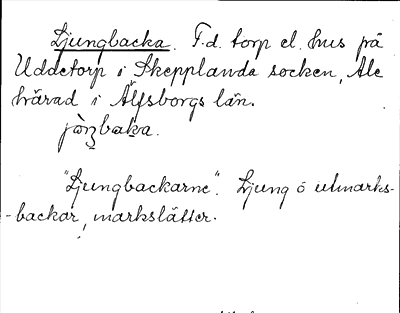 Ljungbacka. F.d. torp el. hus på
Uddetorp i Skepplanda socken, Ale
härad i Älfsborgs län.
"Ljungbackarne". Ljung å utmarks-
-backar, markslätter.